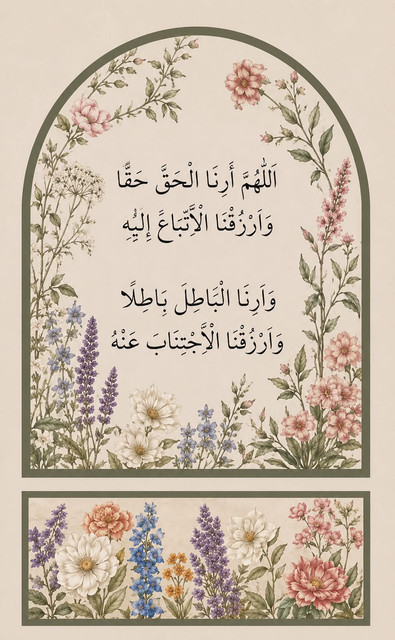 اَللّٰهُمَّ أَرِنَا الْحَقَّ حَقًّا
وَارْزُقْنَا الْاَتِّبَاعَ إِلَيْهِ
وَاَرِنَا الْبَاطِلَ بَاطِلًا
وَارْزُقْنَا الْاَجْتِنَابَ عَنْهُ